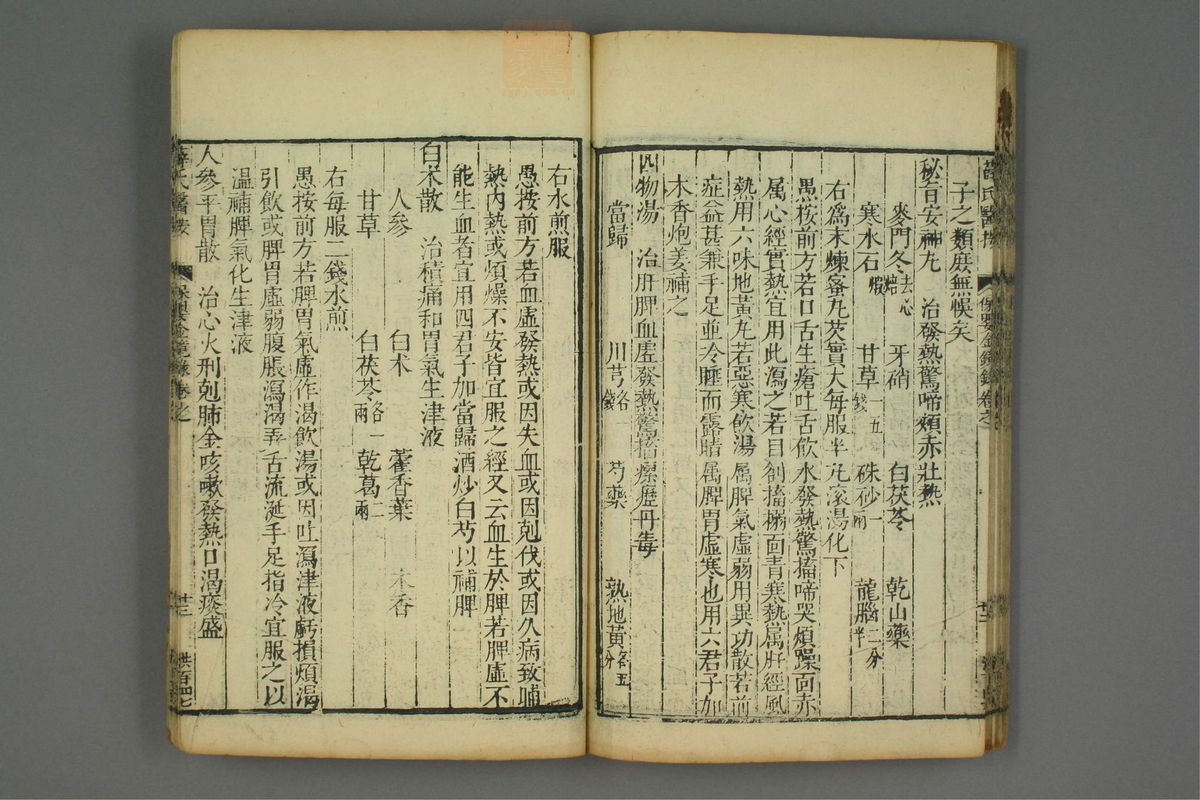 子之類庶無悞矣
秘旨安神丸　治發熱驚啼頰赤壯熱
麥門冬去心焙　牙硝　白茯苓　乾山藥
寒水石煅　甘草一錢五　硃砂一兩　龍腦二分半
右爲末煉蜜丸芡實大每服半丸滚湯化下
愚按前方若口舌生瘡吐舌飲水發熱驚搐啼哭煩躁面赤
属心經實熱宜用此瀉之若目劄搐搦面青寒熱属肝經風
熱用六味地黃丸若惡寒飲湯属脾氣虛弱用異功散若前
症益甚兼手足並冷睡而露睛属脾胃虛寒也用六君子加
木香炮姜補之
四物湯　治肝脾血虛發熱驚搐瘰癧丹毒
當歸　川芎各一錢　芍藥　熟地黃各五分
右水煎服
愚按前方若血虛發熱或因失血或因剋伐或因久病致晡
熱内熱或煩燥不安皆宜服之經又云血生於脾若脾虛不
能生血者宜用四君子加當歸酒炒白芍以補脾
白术散　治積痛和胃氣生津液
人參　白术　藿香葉　木香
甘草　白茯苓各一兩　乾葛二兩
右每服二錢水煎
愚按前方若脾胃氣虛作渴飲湯或因吐瀉津液虧損煩渴
引飲或脾胃虛弱腹脹瀉渴弄舌流涎手足指冷宜服之以
溫補脾氣化生津液
人參平胃散　治心火刑剋肺金咳嗽發熱口渴痰盛
薛氏醫按　保嬰金鏡錄卷之　廿三　洪百四七